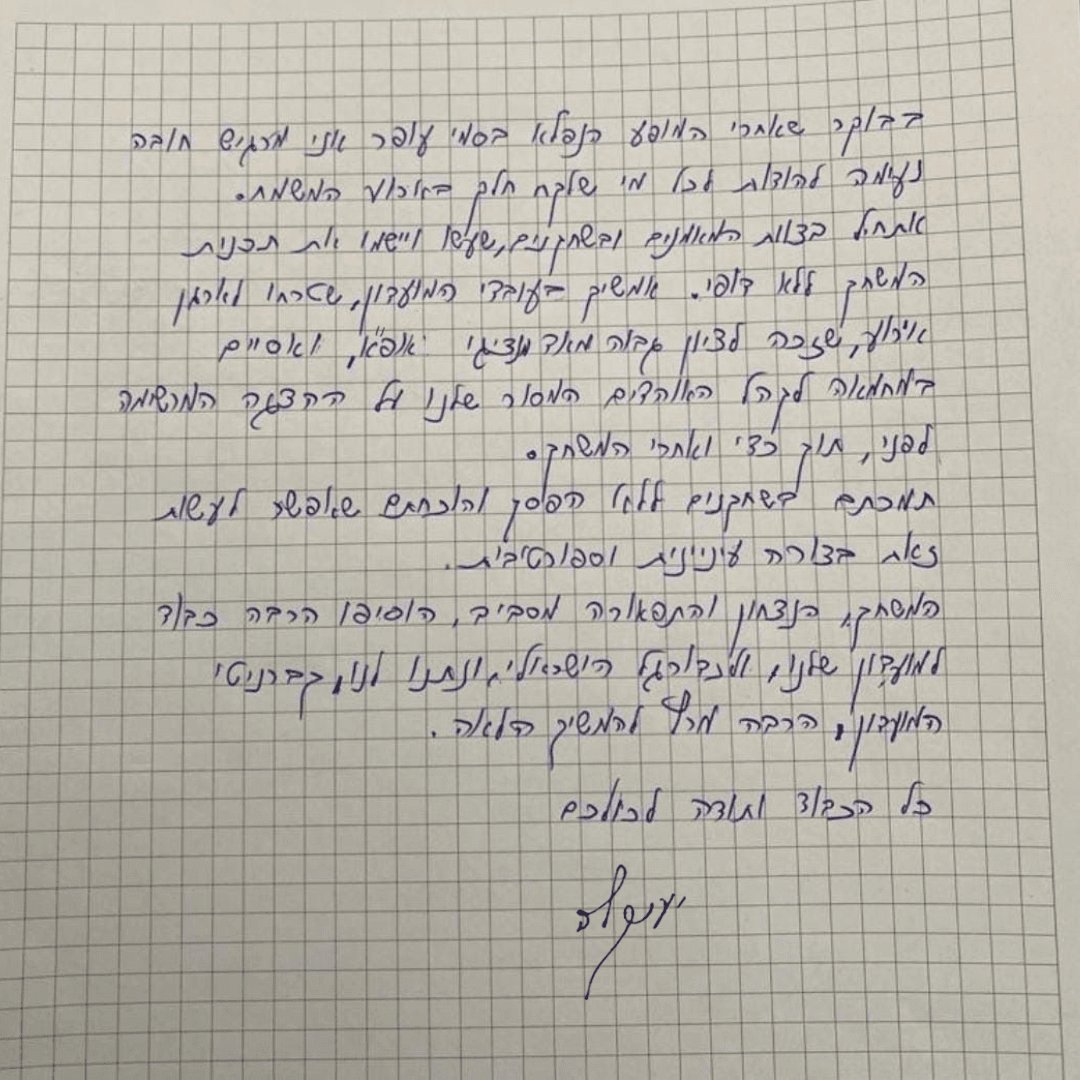 בבוקר שאחרי המופע הנפלא בסמי עופר אני מרגיש חובה
נעימה להודות לכל מי שלקח חלק באירוע המשמח.
אתחיל בצוות המאמנים ובשחקנים, שעשו ויישמו את תכנית
המשחק ללא דופי. אמשיך בעובדי המועדון, שטרחו לארגן
אירוע, שזכה לציון גבוה מאד מנציגי אופ"א, ואסיים
במחמאה לקהל האוהדים המסור שלנו על ההצגה המרשימה
לפני, תוך כדי ואחרי המשחק.
תמכתם בשחקנים ללא הפסק והוכחתם שאפשר לעשות
זאת בצורה עיניינית וספורטיבית.
המשחק, הנצחון והתפאורה מסביב, הוסיפו הרבה כבוד
למועדון שלנו, ולכדורגל הישראלי, ונתנו לנו, קברניטי
המועדון, הרבה מרץ להמשיך הלאה.
כל הכבוד ותודה לכולכם
יענקל'ה